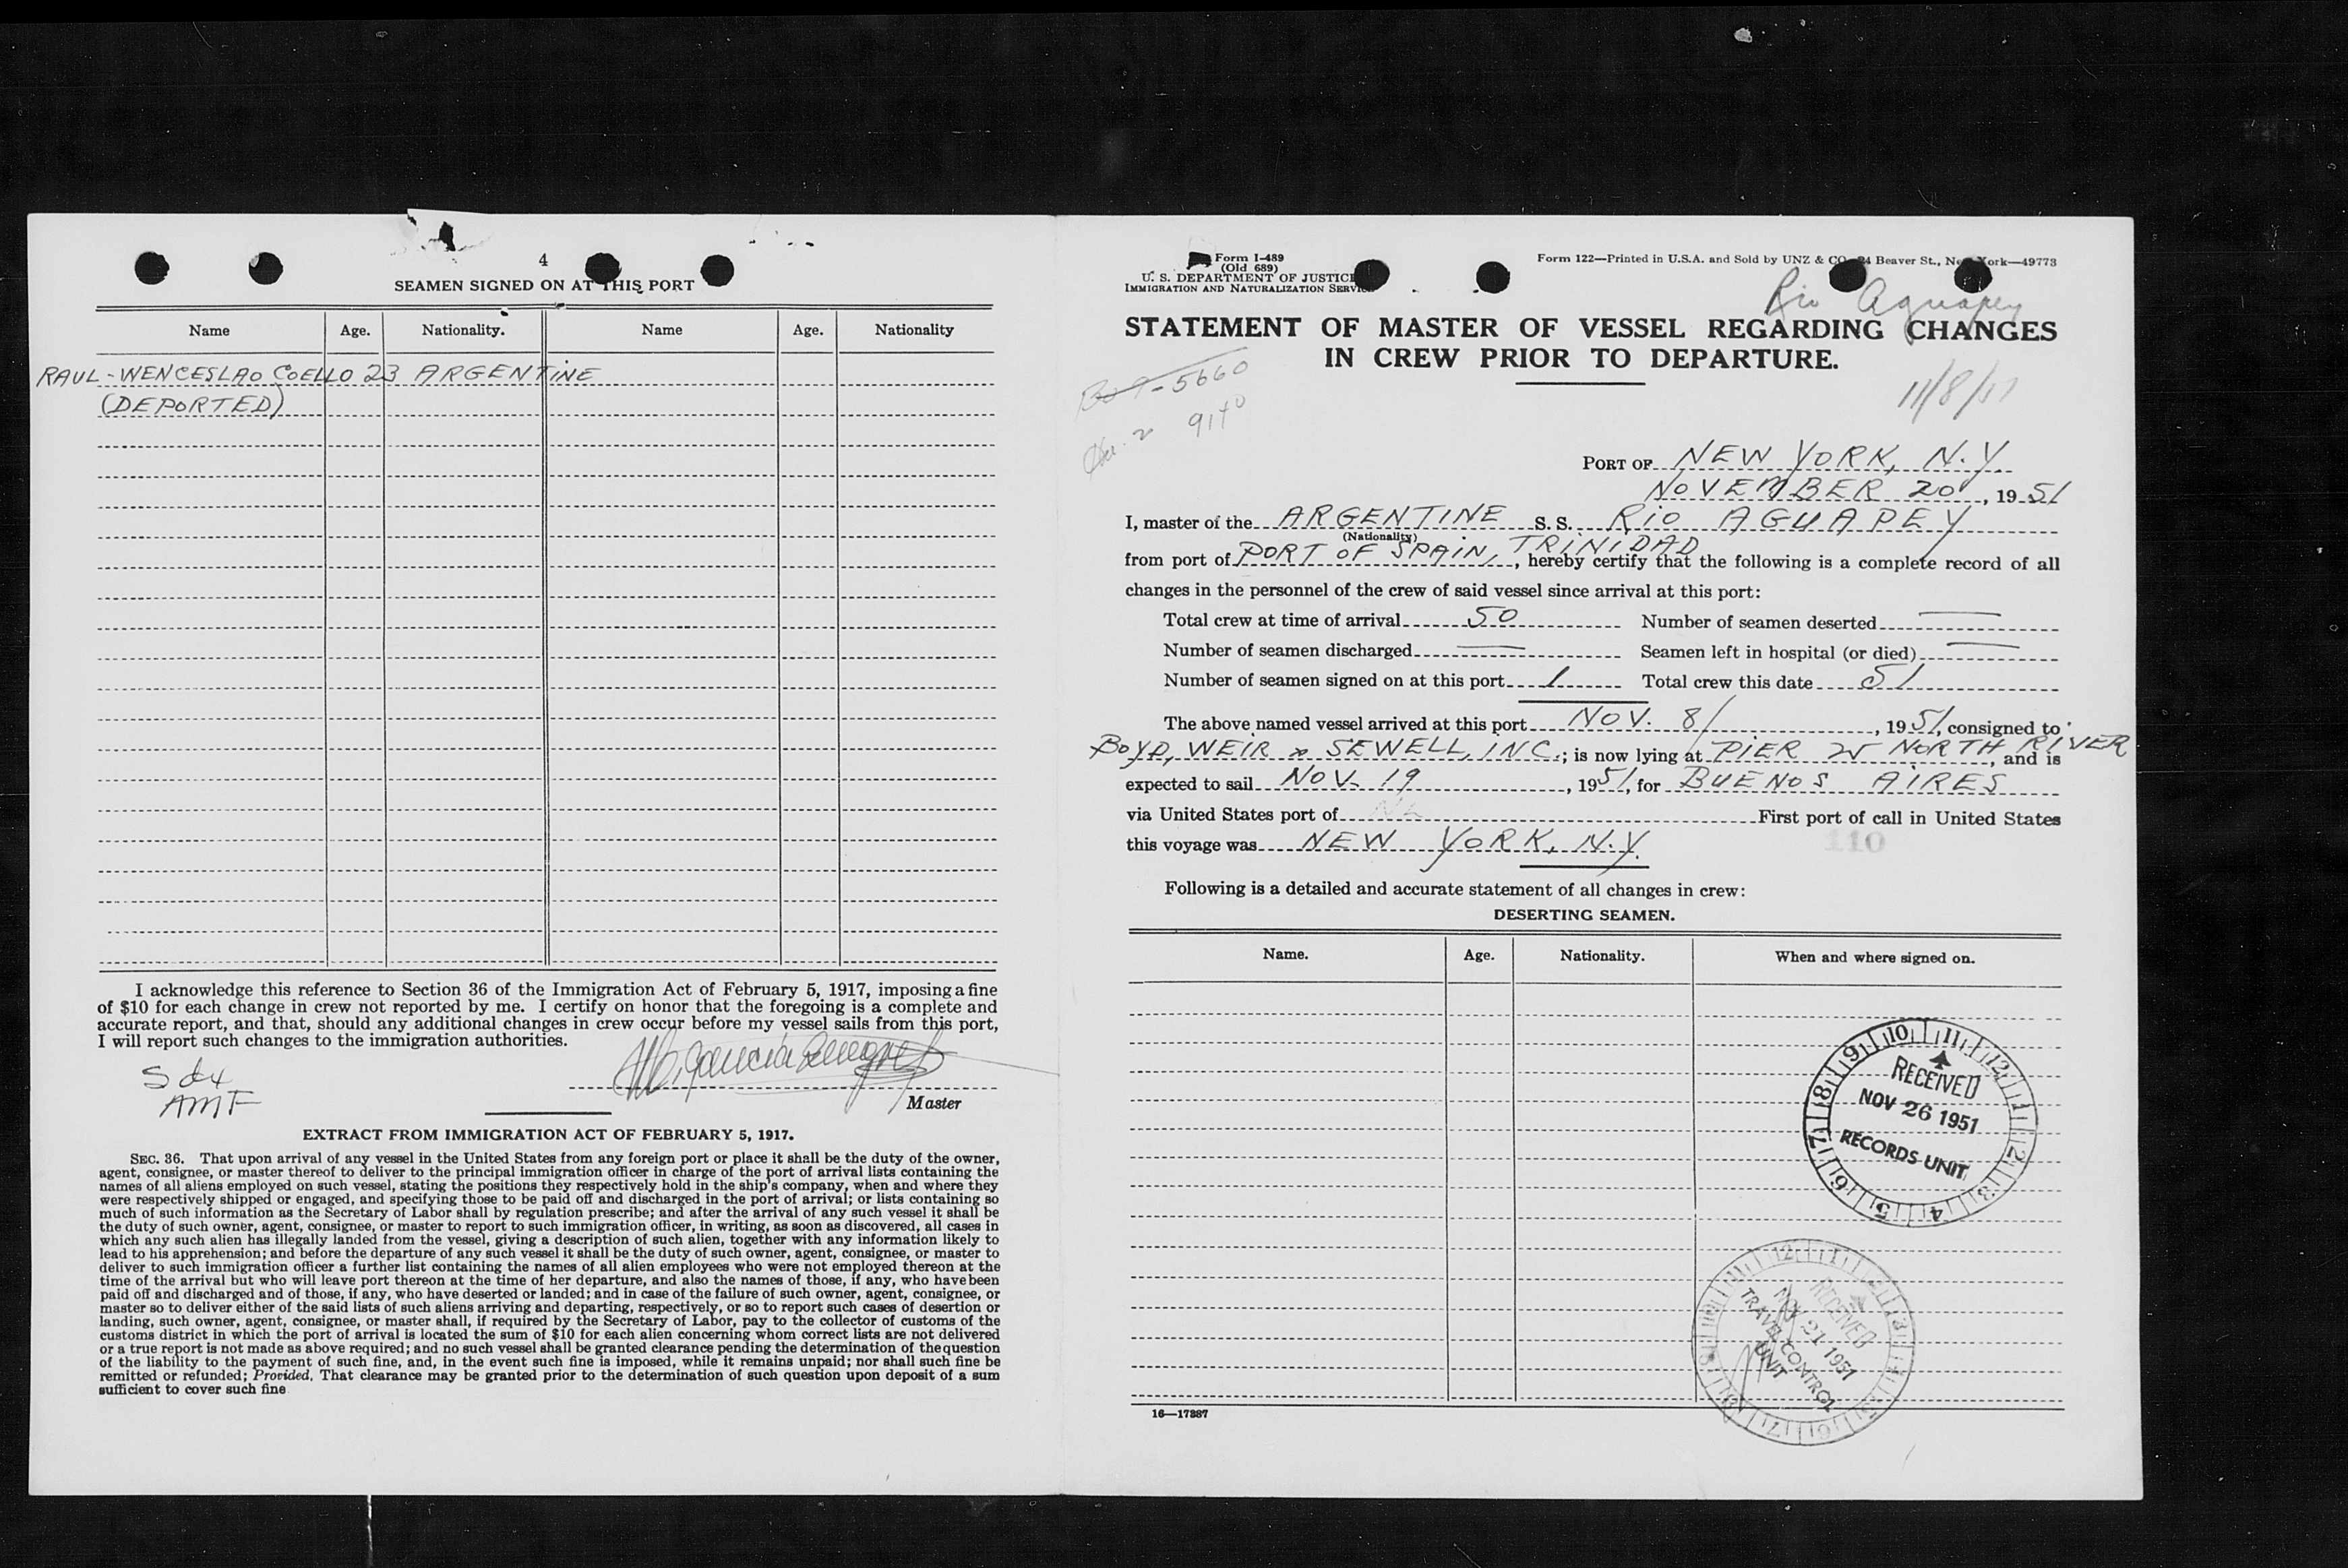 4
SEAMEN SIGNED ON AT THIS PORT
Name Age. Nationality. Name Age. Nationality
RAUL-WENCESLAO COELLO 23 ARGENTINE
(DEPORTED)
I acknowledge this reference to Section 36 of the Immigration Act of February 5, 1917, imposing a fine
of $10 for each change in crew not reported by me. I certify on honor that the foregoing is a complete and
accurate report, and that, should any additional changes in crew occur before my vessel sails from this port,
I will report such changes to the immigration authorities.
AMF
Master
EXTRACT FROM IMMIGRATION ACT OF FEBRUARY 5, 1917.
SEC. 36. That upon arrival of any vessel in the United States from any foreign port or place it shall be the duty of the owner,
agent, consignee, or master thereof to deliver to the principal immigration officer in charge of the port of arrival lists containing the
names of all aliens employed on such vessel, stating the positions they respectively hold in the ship's company, when and where they
were respectively shipped or engaged, and specifying those to be paid off and discharged in the port of arrival; or lists containing so
much of such information as the Secretary of Labor shall by regulation prescribe; and after the arrival of any such vessel it shall be
the duty of such owner, agent, consignee, or master to report to such immigration officer, in writing, as soon as discovered, all cases in
which any such alien has illegally landed from the vessel, giving a description of such alien, together with any information likely to
lead to his apprehension; and before the departure of any such vessel it shall be the duty of such owner, agent, consignee, or master to
deliver to such immigration officer a further list containing the names of all alien employees who were not employed thereon at the
time of the arrival but who will leave port thereon at the time of her departure, and also the names of those, if any, who have been
paid off and discharged and of those, if any, who have deserted or landed; and in case of the failure of such owner, agent, consignee, or
master so to deliver either of the said lists of such aliens arriving and departing, respectively, or so to report such cases of desertion or
landing, such owner, agent, consignee, or master shall, if required by the Secretary of Labor, pay to the collector of customs of the
customs district in which the port of arrival is located the sum of $10 for each alien concerning whom correct lists are not delivered
or a true report is not made as above required; and no such vessel shall be granted clearance pending the determination of the question
of the liability to the payment of such fine, and, in the event such fine is imposed, while it remains unpaid; nor shall such fine be
remitted or refunded; Provided, That clearance may be granted prior to the determination of such question upon deposit of a sum
sufficient to cover such fine
Form I-489
(Old 689)
U. S. DEPARTMENT OF JUSTICE
IMMIGRATION AND NATURALIZATION SERVICE
Form 122—Printed in U.S.A. and Sold by UNZ & CO. 24 Beaver St., New York—49773
Rio Aguapey
STATEMENT OF MASTER OF VESSEL REGARDING CHANGES
IN CREW PRIOR TO DEPARTURE.
11/8/51
PORT OF NEW YORK, N.Y.
NOVEMBER 20, 1951
I, master of the ARGENTINE S. S. RIO AGUAPEY
(Nationality)
from port of PORT OF SPAIN, TRINIDAD, hereby certify that the following is a complete record of all
changes in the personnel of the crew of said vessel since arrival at this port:
Total crew at time of arrival 50 Number of seamen deserted —
Number of seamen discharged — Seamen left in hospital (or died) —
Number of seamen signed on at this port 1 Total crew this date 51
The above named vessel arrived at this port NOV. 8/, 1951, consigned to
BOYD, WEIR & SEWELL, INC.; is now lying at PIER 25 NORTH RIVER, and is
expected to sail NOV. 19, 1951, for BUENOS AIRES
via United States port of First port of call in United States
this voyage was NEW YORK, N.Y.
110
Following is a detailed and accurate statement of all changes in crew:
DESERTING SEAMEN.
Name. Age. Nationality. When and where signed on.
RECEIVED
NOV 26 1951
RECORDS UNIT
RECEIVED
NOV 21 1951
TRAVEL CONTROL
UNIT
16—17887